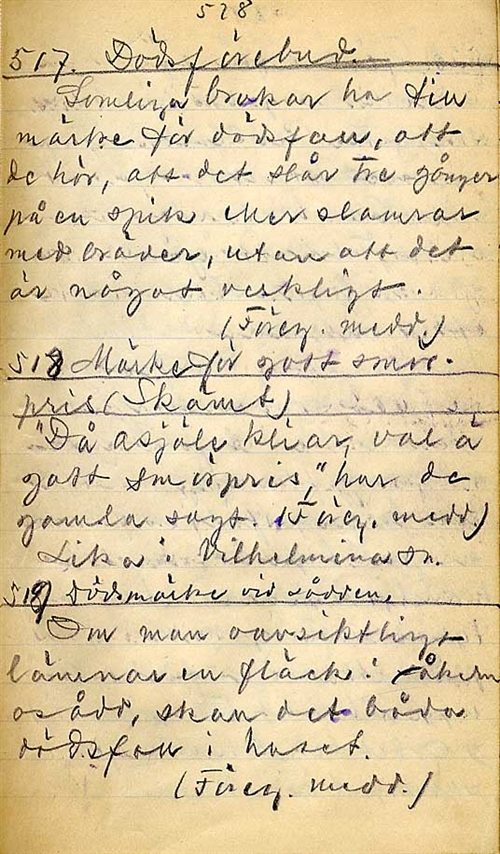 528
517. Dödsförebud.
Somliga brukar ha till
märke för dödsfall, att
de hör, att det slår tre gånger
på en spik eller slamrar
med bräder, utan att det
är något verkligt.
(Föreg. medd.)
518 Märke för gott smör-
pris (Skämt)
"Då kliar, val ä
gott smörpris," har de
gamla sagt. (Föreg. medd.)
Lika i Vilhelmina sn.
519) Dödsmärke vid sådden.
Om man oavsiktligt
lämnar en fläck i åkern
osådd, skall det båda
dödsfall i huset.
(Föreg. medd.)